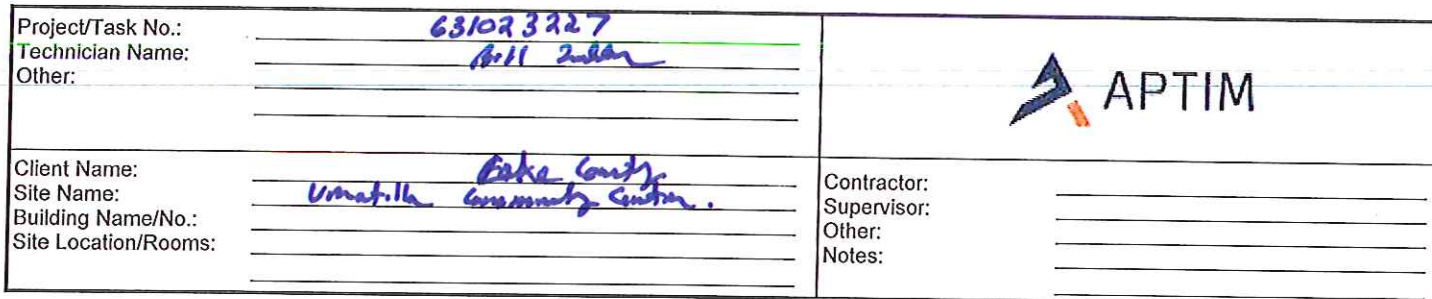 Project/Task No.: 631023227
Technician Name: Bill
Other:
APTIM
Client Name: Lake County
Site Name: Umatilla Community Center.
Building Name/No.:
Site Location/Rooms:
Contractor:
Supervisor:
Other:
Notes: